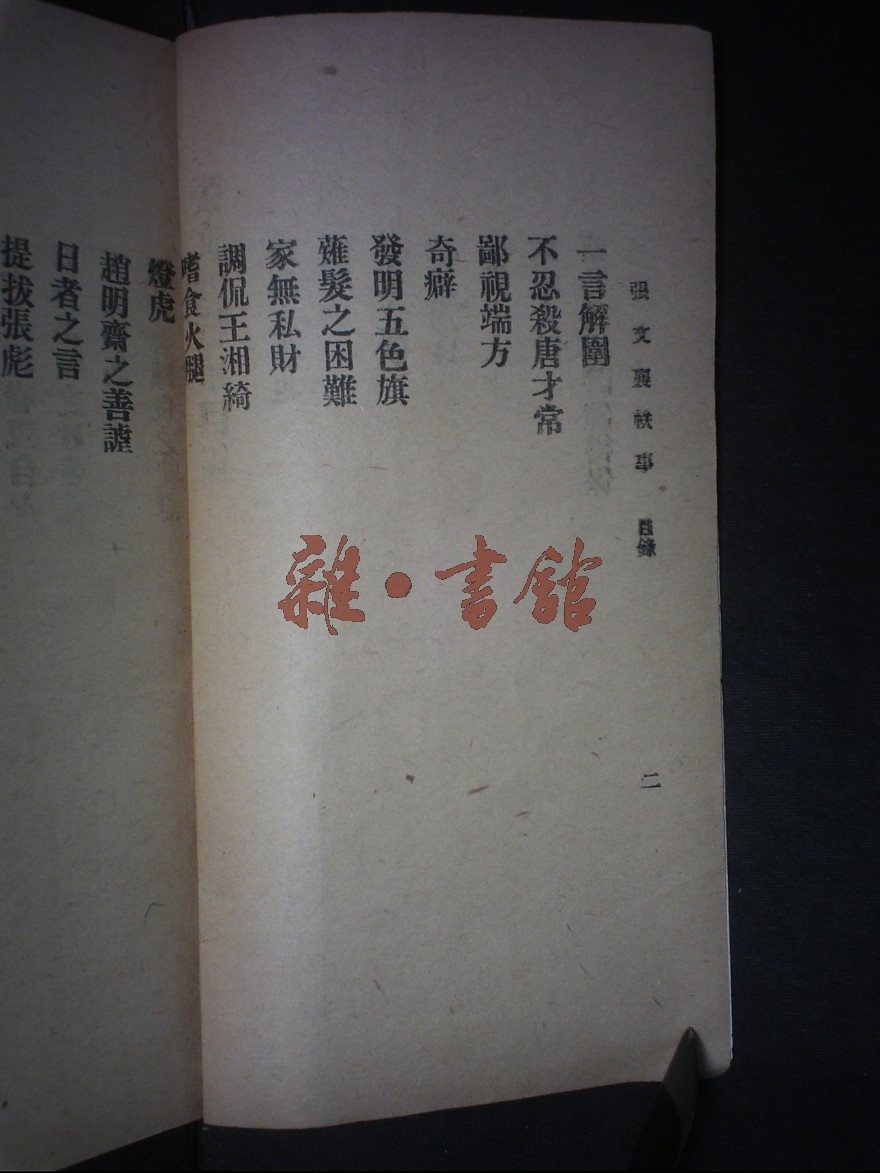 張文襄軼事 目錄 二
一言解圍
不忍殺唐才常
鄙視端方
奇癖
發明五色旗
薙髮之困難
家無私財
調侃王湘綺
嗜食火腿
燈虎
趙明齋之善謔
日者之言
提拔張彪
雜·書館